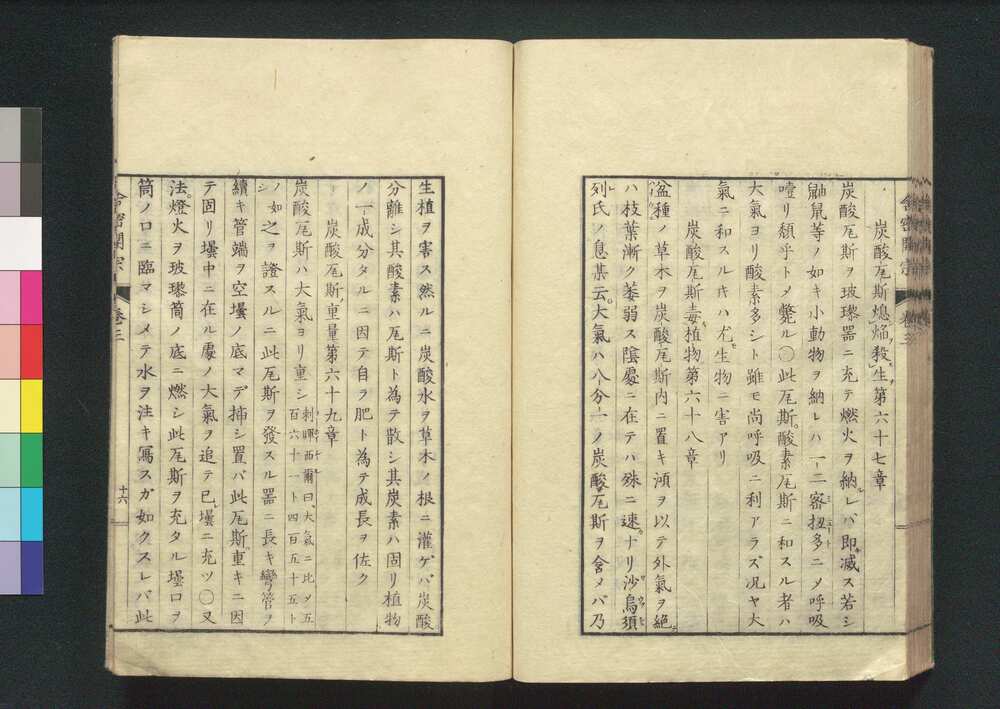 炭酸瓦斯熄焔殺生第六十七章
炭酸瓦斯ヲ玻瓈器ニ充テ燃火ヲ納レバ即滅ス若シ
鼬鼠等ノ如キ小動物ヲ納レハ一二密扭多ニメ呼吸
噎リ頽乎トメ斃ル〇此瓦斯酸素瓦斯ニ和スル者ハ
大氣ヨリ酸素多シト雖モ尚呼吸ニ利アラズ况ヤ大
氣ニ和スルキハ尤生物ニ害アリ
炭酸瓦斯毒植物第六十八章
盆種ノ草木ヲ炭酸瓦斯内ニ置キ澒ヲ以テ外氣ヲ絶
ハ枝葉漸ク萎弱ス陰處ニ在テハ殊ニ速ナリ沙烏須
列氏ノ息某云大氣ハ八分一ノ炭酸瓦斯ヲ含メバ乃
舎密開宗 巻三
生植ヲ害ス然ルニ炭酸水ヲ草木ノ根ニ灌ゲバ炭酸
分離シ其酸素ハ瓦斯ト為テ散シ其炭素ハ固リ植物
ノ一成分タルニ因テ自ラ肥ト為テ成長ヲ佐ク
炭酸瓦斯重量第六十九章
炭酸瓦斯ハ大氣ヨリ重シ
剌暉西爾曰大氣ニ比メ五
百六十一ト四百五十五ト
ノ如シ
之ヲ證スルニ此瓦斯ヲ發スル器ニ長キ彎管ヲ
續キ管端ヲ空壜ノ底マデ揷シ置バ此瓦斯重キニ因
テ固リ壜中ニ在ル處ノ大氣ヲ追テ已壜ニ充ツ〇又
法燈火ヲ玻瓈筒ノ底ニ燃シ此瓦斯ヲ充タル壜口ヲ
筒ノ口ニ臨マシメテ水ヲ注キ寫スガ如クスレバ此
舎密開宗 巻三
十六